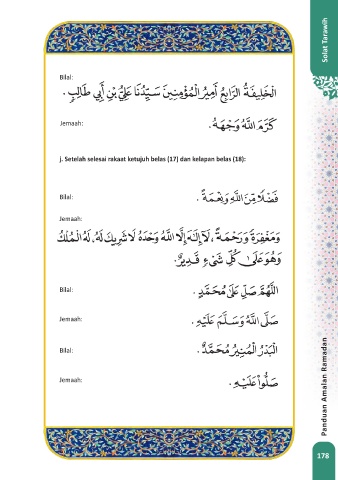 Solat Tarawih
Bilal:
الْخَلِيفَةُ الرَّابِعُ أَمِيرُ الْمُؤْمِنِينَ سَيِّدُنَا عَلِيُّ بْنُ أَبِي طَالِبٍ .
Jemaah:
كَرَّمَ اللَّهُ وَجْهَهُ .
j. Setelah selesai rakaat ketujuh belas (17) dan kelapan belas (18):
Bilal:
فَضْلًا مِّنَ اللَّهِ وَنِعْمَةً .
Jemaah:
وَمَغْفِرَةً وَرَحْمَةً ، لَآ إِلَٰهَ إِلَّا اللَّهُ وَحْدَهُ لَا شَرِيكَ لَهُ. لَهُ الْمُلْكُ
وَهُوَ عَلَىٰ كُلِّ شَيْءٍ قَدِيرٌ.
Bilal:
اللَّهُمَّ صَلِّ عَلَىٰ مُحَمَّدٍ .
Jemaah:
صَلَّى اللَّهُ وَسَلَّمَ عَلَيْهِ .
Bilal:
الْبَدْرُ الْمُنِيرُ مُحَمَّدٌ .
Jemaah:
صَلُّوا عَلَيْهِ .
Panduan Amalan Ramadan
178